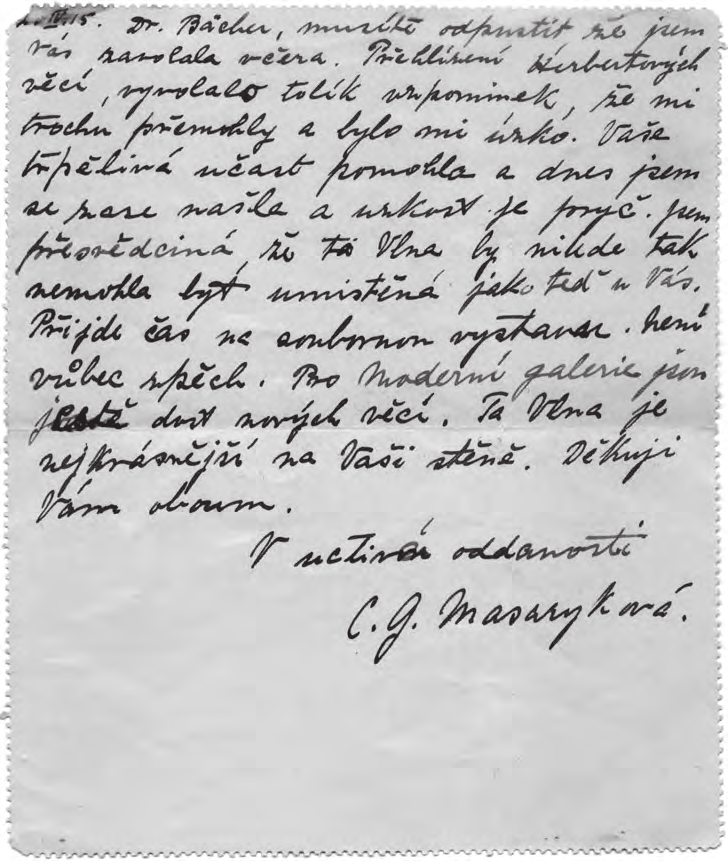 IV.15. Dr. Bächer, musíte odpustit že jsem
Vás zavolala včera. Přehlížení Herbertových
věcí, vyvolalo tolik vzpomínek, že mi
trochu přemohly a bylo mi úzko. Vaše
trpělivá učast pomohla a dnes jsem
se zase našla a uzkost je pryč. Jsem
přesvědciná, že ta Vlna by nikde tak
nemohla byt umistěná jako teď u Vás.
Přijde čas na soubornou vystavu. Není
vůbec spěch. Pro Moderní galerie jsou
ještě dost nových věcí. Ta Vlna je
nejkrásnější na Vaši stěně. Děkuji
Vám oboum.
V uctivé oddanosti
C. G. Masaryková.